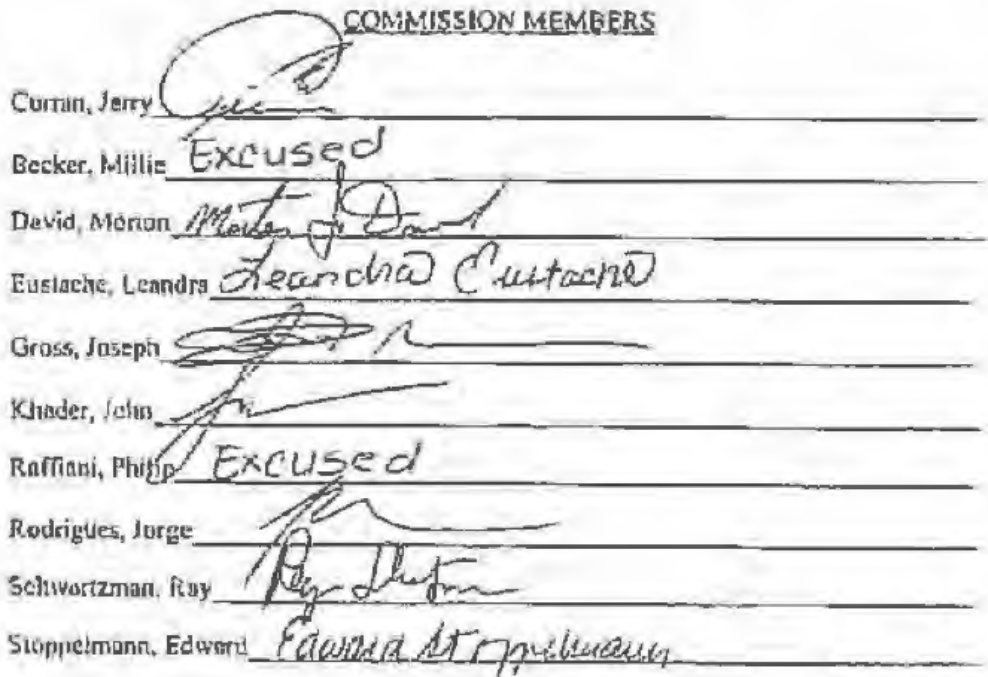 COMMISSION MEMBERS
Curran, Jerry
Becker, Millie Excused
David, Morton Morton J. David
Eustache, Leandra Leandra Eustache
Gross, Joseph
Khader, John
Raffiani, Philip Excused
Rodrigues, Jorge
Schwartzman, Ray
Stoppelmann, Edward Edward Stoppelmann